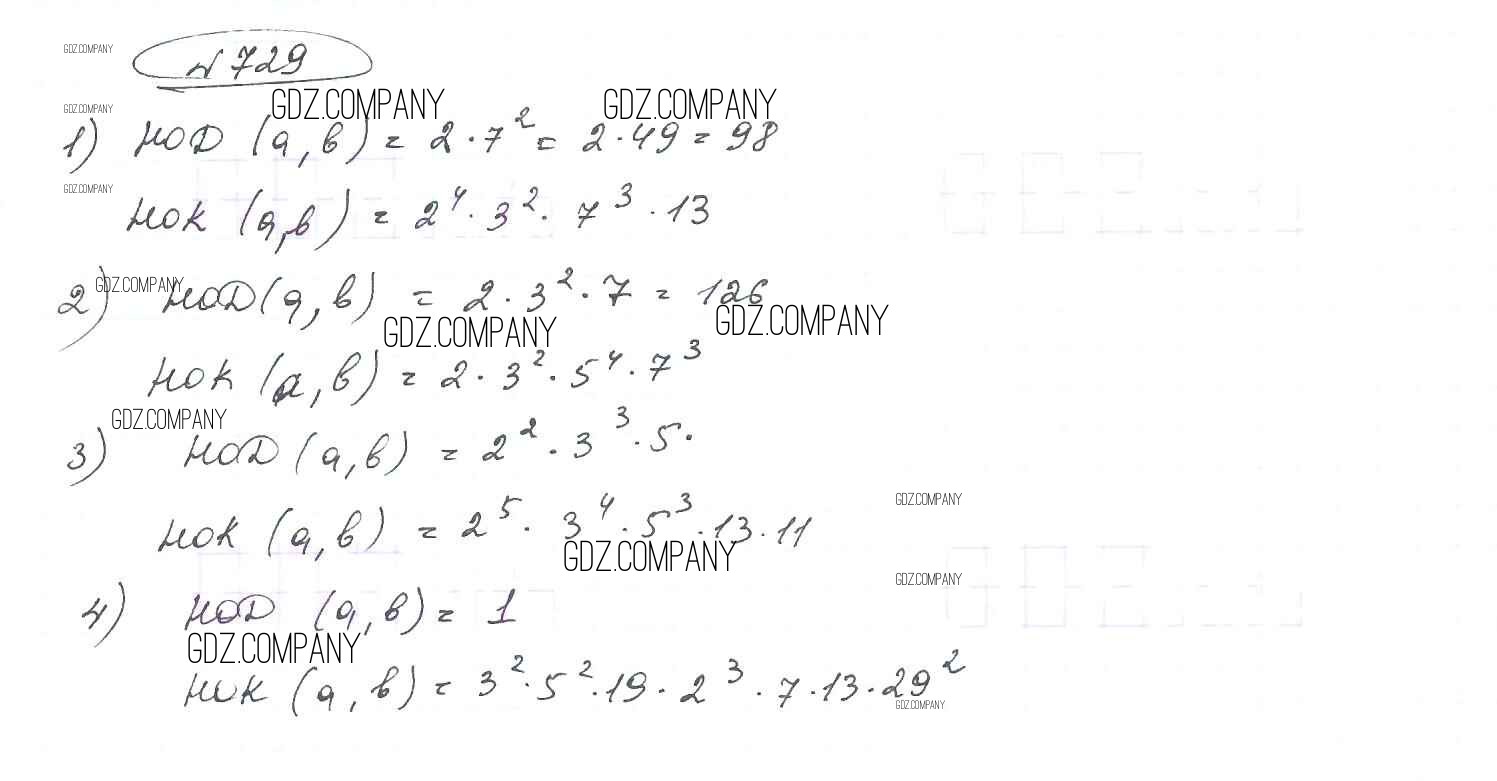 GDZ.COMPANY
№ 729
GDZ.COMPANY GDZ.COMPANY
GDZ.COMPANY
1) НОД (а, в) = 2 · 7² = 2 · 49 = 98
GDZ.COMPANY
НОК (а, в) = 2⁴ · 3² · 7³ · 13
GDZ.COMPANY
2) НОД (а, в) = 2 · 3² · 7 = 126
GDZ.COMPANY GDZ.COMPANY
НОК (а, в) = 2 · 3² · 5⁴ · 7³
GDZ.COMPANY
3) НОД (а, в) = 2² · 3³ · 5 ·
GDZ.COMPANY
НОК (а, в) = 2⁵ · 3⁴ · 5³ · 13 · 11
GDZ.COMPANY
GDZ.COMPANY
4) НОД (а, в) = 1
GDZ.COMPANY
НОК (а, в) = 3² · 5² · 19 · 2³ · 7 · 13 · 29²
GDZ.COMPANY